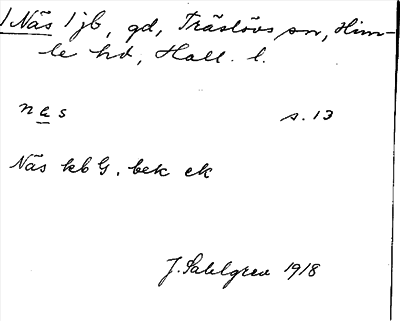 1 Näs 1 jb, gd, Träslövs sn, Him-
le hd, Hall. l.
nɛs s. 13
Näs kb G. bek ek
J. Sahlgren 1918